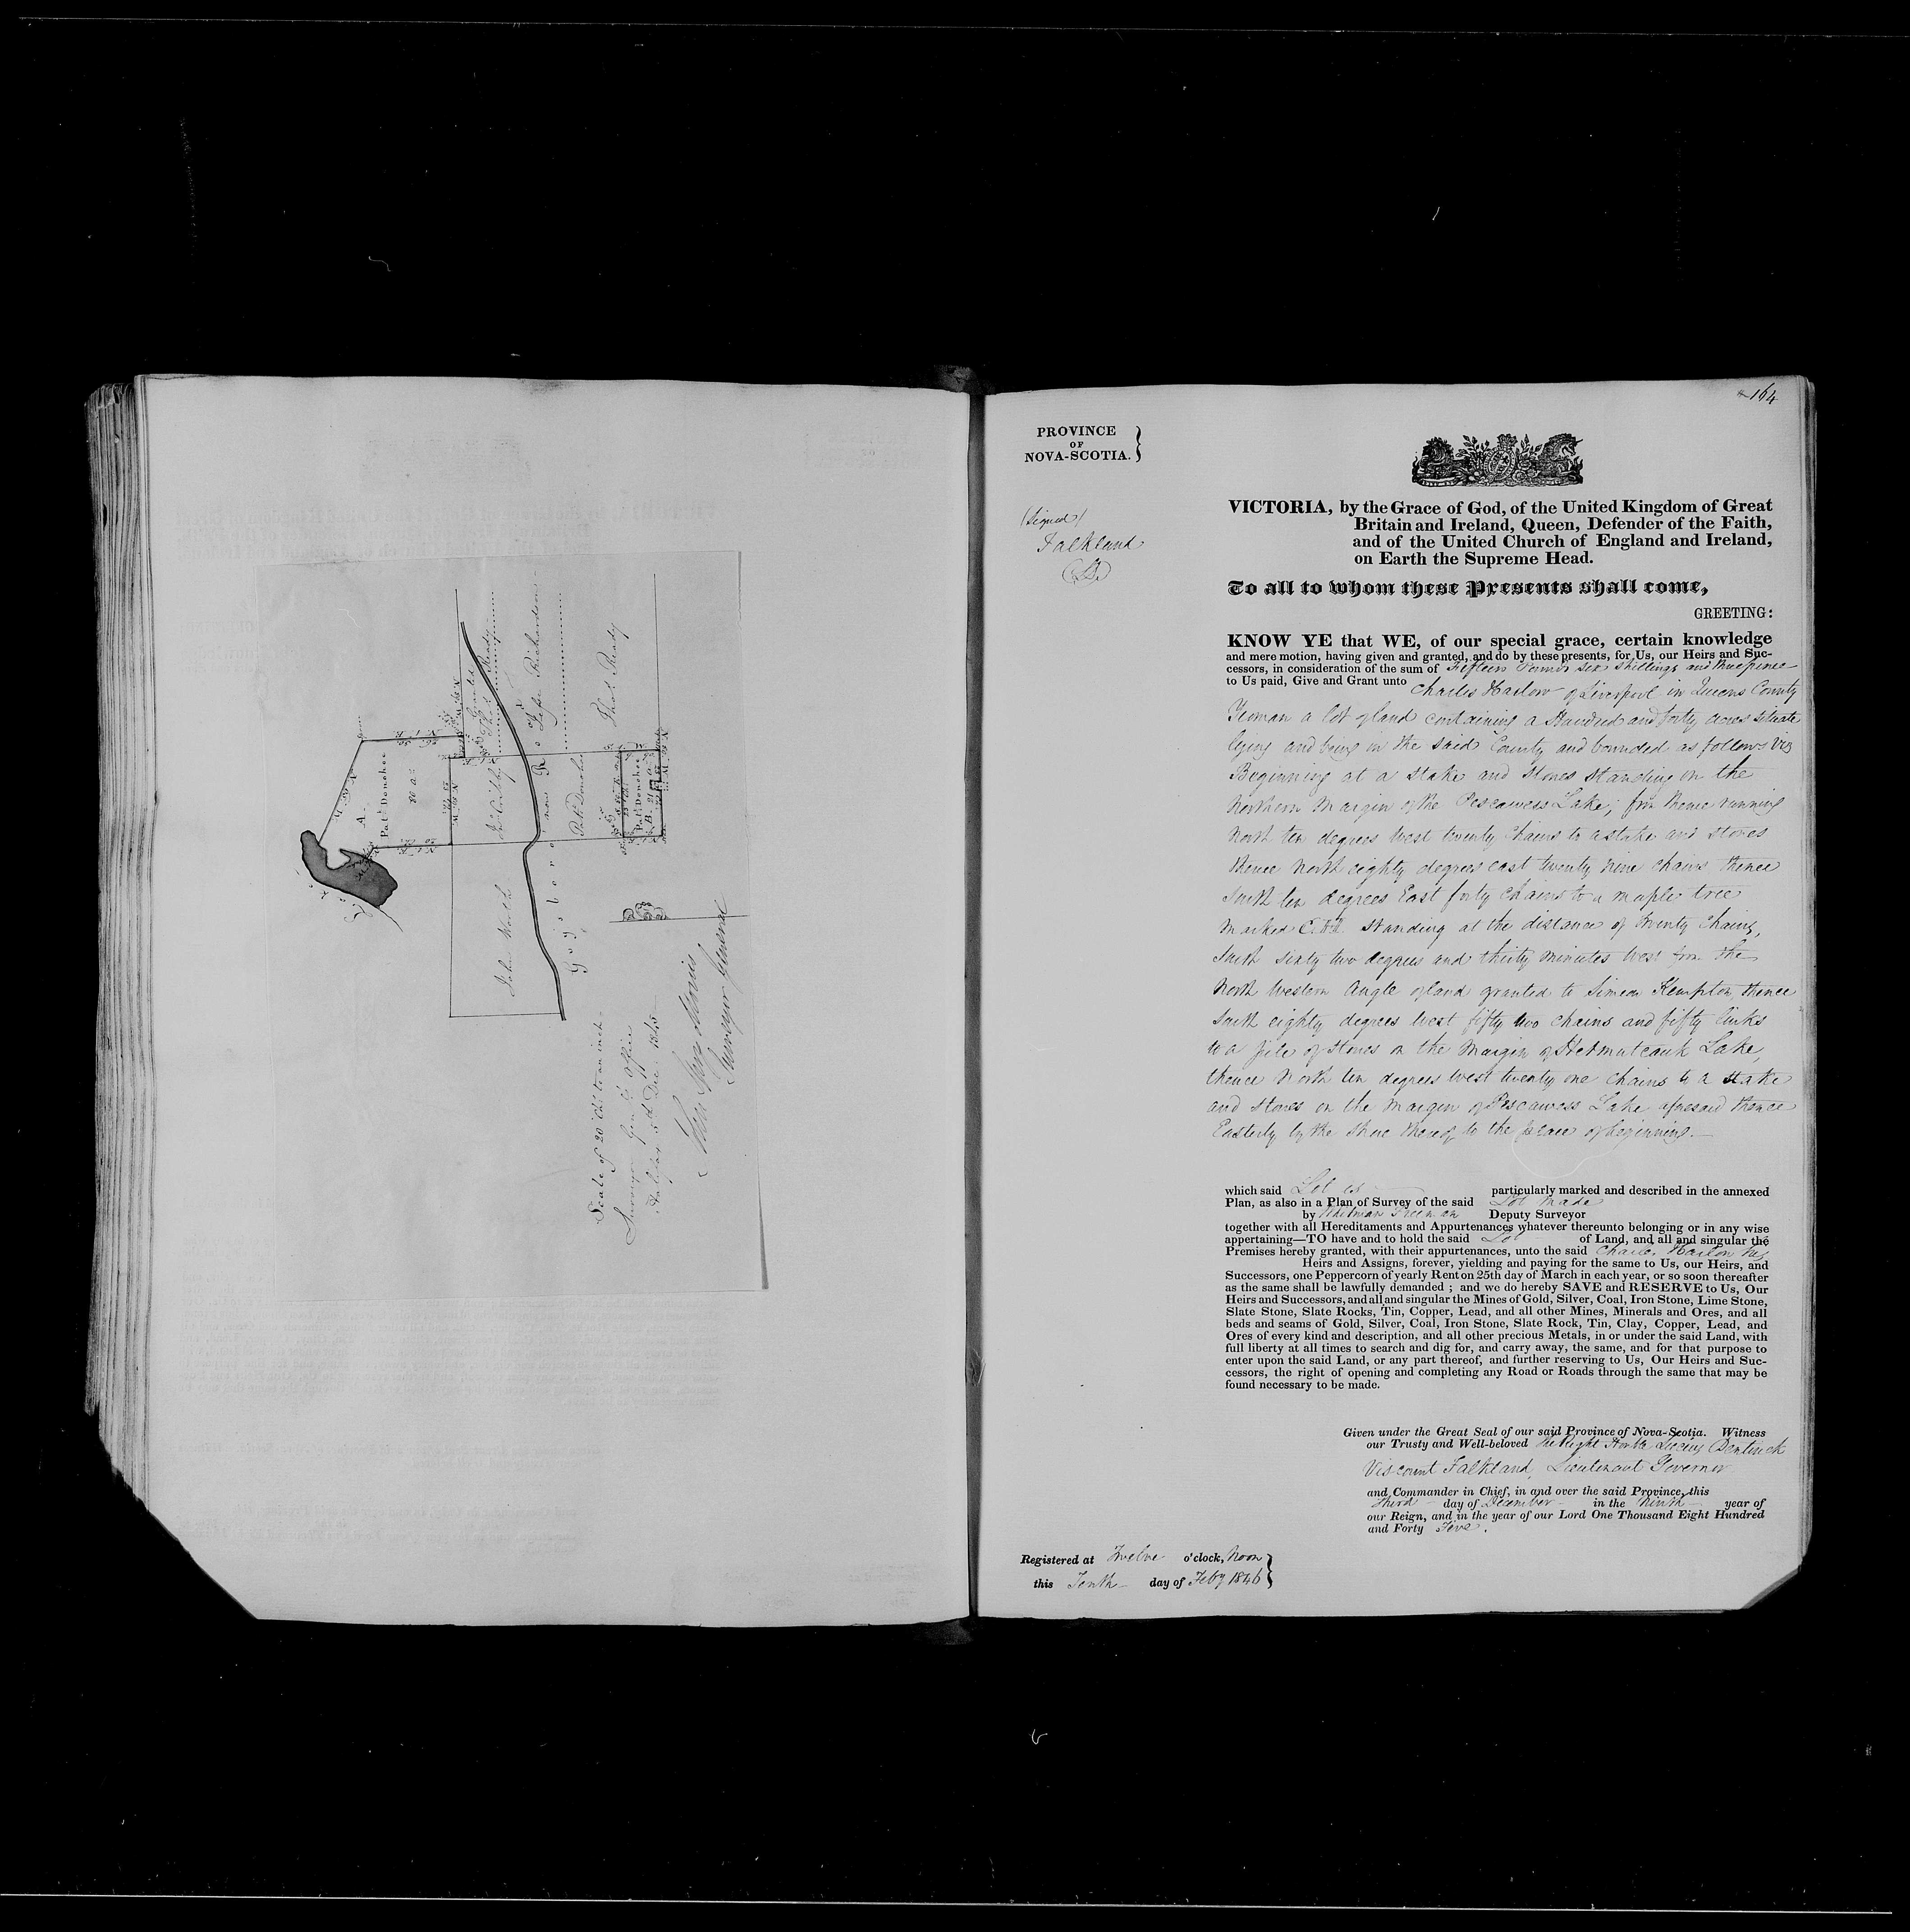 A.
Pat.k Donohoe
80 a:
Granted
Thos Ready
John Worth
Guysboro
Road
To Lope Richardson
Pat.k Donohoe
Thos Ready
Pat.k Donohoe
B. 21
Scale of 20 Chs to an inch.
Surveyor Genl's Office
Halifax 5th Decr 1845
John Spry Morris
Surveyor General
164
PROVINCE
OF
NOVA-SCOTIA.
(Signed)
Falkland
(LS)
VICTORIA, by the Grace of God, of the United Kingdom of Great
Britain and Ireland, Queen, Defender of the Faith,
and of the United Church of England and Ireland,
on Earth the Supreme Head.
To all to whom these Presents shall come,
GREETING:
KNOW YE that WE, of our special grace, certain knowledge
and mere motion, having given and granted, and do by these presents, for Us, our Heirs and Suc-
cessors, in consideration of the sum of Fifteen Pounds six shillings and threepence
to Us paid, Give and Grant unto Charles Harlow of Liverpool in Queens County
Yeoman a lot of land containing a Hundred and forty acres situate
lying and being in the said County and bounded as follows Viz
Beginning at a stake and stones standing on the
Northern Margin of the Pescawess Lake; from thence running
North ten degrees West twenty Chains to a stake and stones
thence North eighty degrees east twenty nine chains thence
South ten degrees East forty chains to a maple tree
Marked standing at the distance of twenty Chains,
South sixty two degrees and thirty minutes West from the
North Western Angle of land granted to Simeon Kempton, thence
South eighty degrees West fifty two chains and fifty links
to a pile of stones on the Margin of Lake,
thence North ten degrees West twenty one Chains to a stake
and stones on the Margin of Pescawess Lake aforesaid thence
Easterly by the shore thereof to the place of beginning.—
which said Lot is particularly marked and described in the annexed
Plan, as also in a Plan of Survey of the said Lot made
by Whitman Freeman Deputy Surveyor
together with all Hereditaments and Appurtenances whatever thereunto belonging or in any wise
appertaining—TO have and to hold the said Lot of Land, and all and singular the
Premises hereby granted, with their appurtenances, unto the said Charles Harlow his
Heirs and Assigns, forever, yielding and paying for the same to Us, our Heirs, and
Successors, one Peppercorn of yearly Rent on 25th day of March in each year, or so soon thereafter
as the same shall be lawfully demanded ; and we do hereby SAVE and RESERVE to Us, Our
Heirs and Successors, and all and singular the Mines of Gold, Silver, Coal, Iron Stone, Lime Stone,
Slate Stone, Slate Rocks, Tin, Copper, Lead, and all other Mines, Minerals and Ores, and all
beds and seams of Gold, Silver, Coal, Iron Stone, Slate Rock, Tin, Clay, Copper, Lead, and
Ores of every kind and description, and all other precious Metals, in or under the said Land, with
full liberty at all times to search and dig for, and carry away, the same, and for that purpose to
enter upon the said Land, or any part thereof, and further reserving to Us, Our Heirs and Suc-
cessors, the right of opening and completing any Road or Roads through the same that may be
found necessary to be made.
Given under the Great Seal of our said Province of Nova-Scotia. Witness
our Trusty and Well-beloved The Right Honble Lucius Bentinck
Viscount Falkland, Lieutenant Governor
and Commander in Chief, in and over the said Province, this
third day of December in the Ninth year of
our Reign, and in the year of our Lord One Thousand Eight Hundred
and Forty Five.
Registered at Twelve o'clock, Noon
this Tenth day of Feby 1846